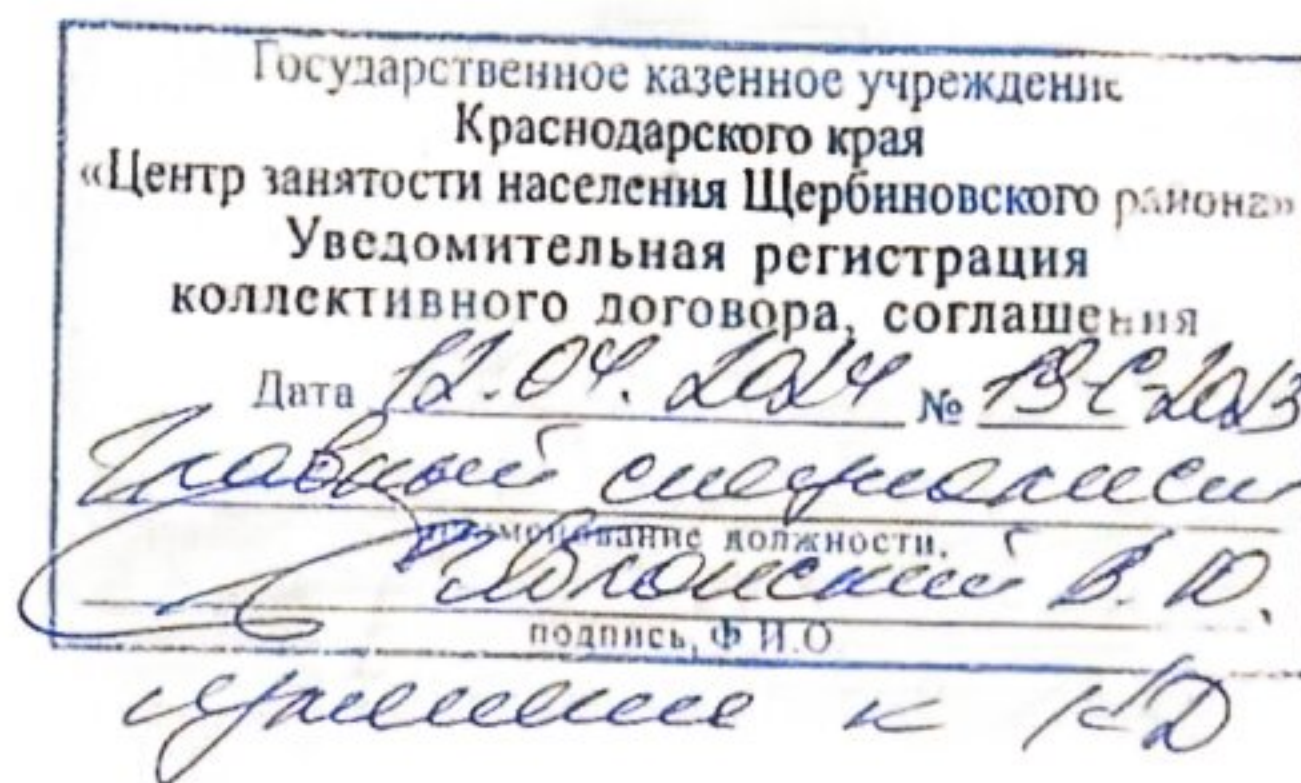 Государственное казенное учреждение
Краснодарского края
«Центр занятости населения Щербиновского района»
Уведомительная регистрация
коллективного договора, соглашения
Дата 12.04.2024 № 19-С-2023
Главный специалист
наименование должности,
В. Ю.
подпись, Ф И.О
к КД